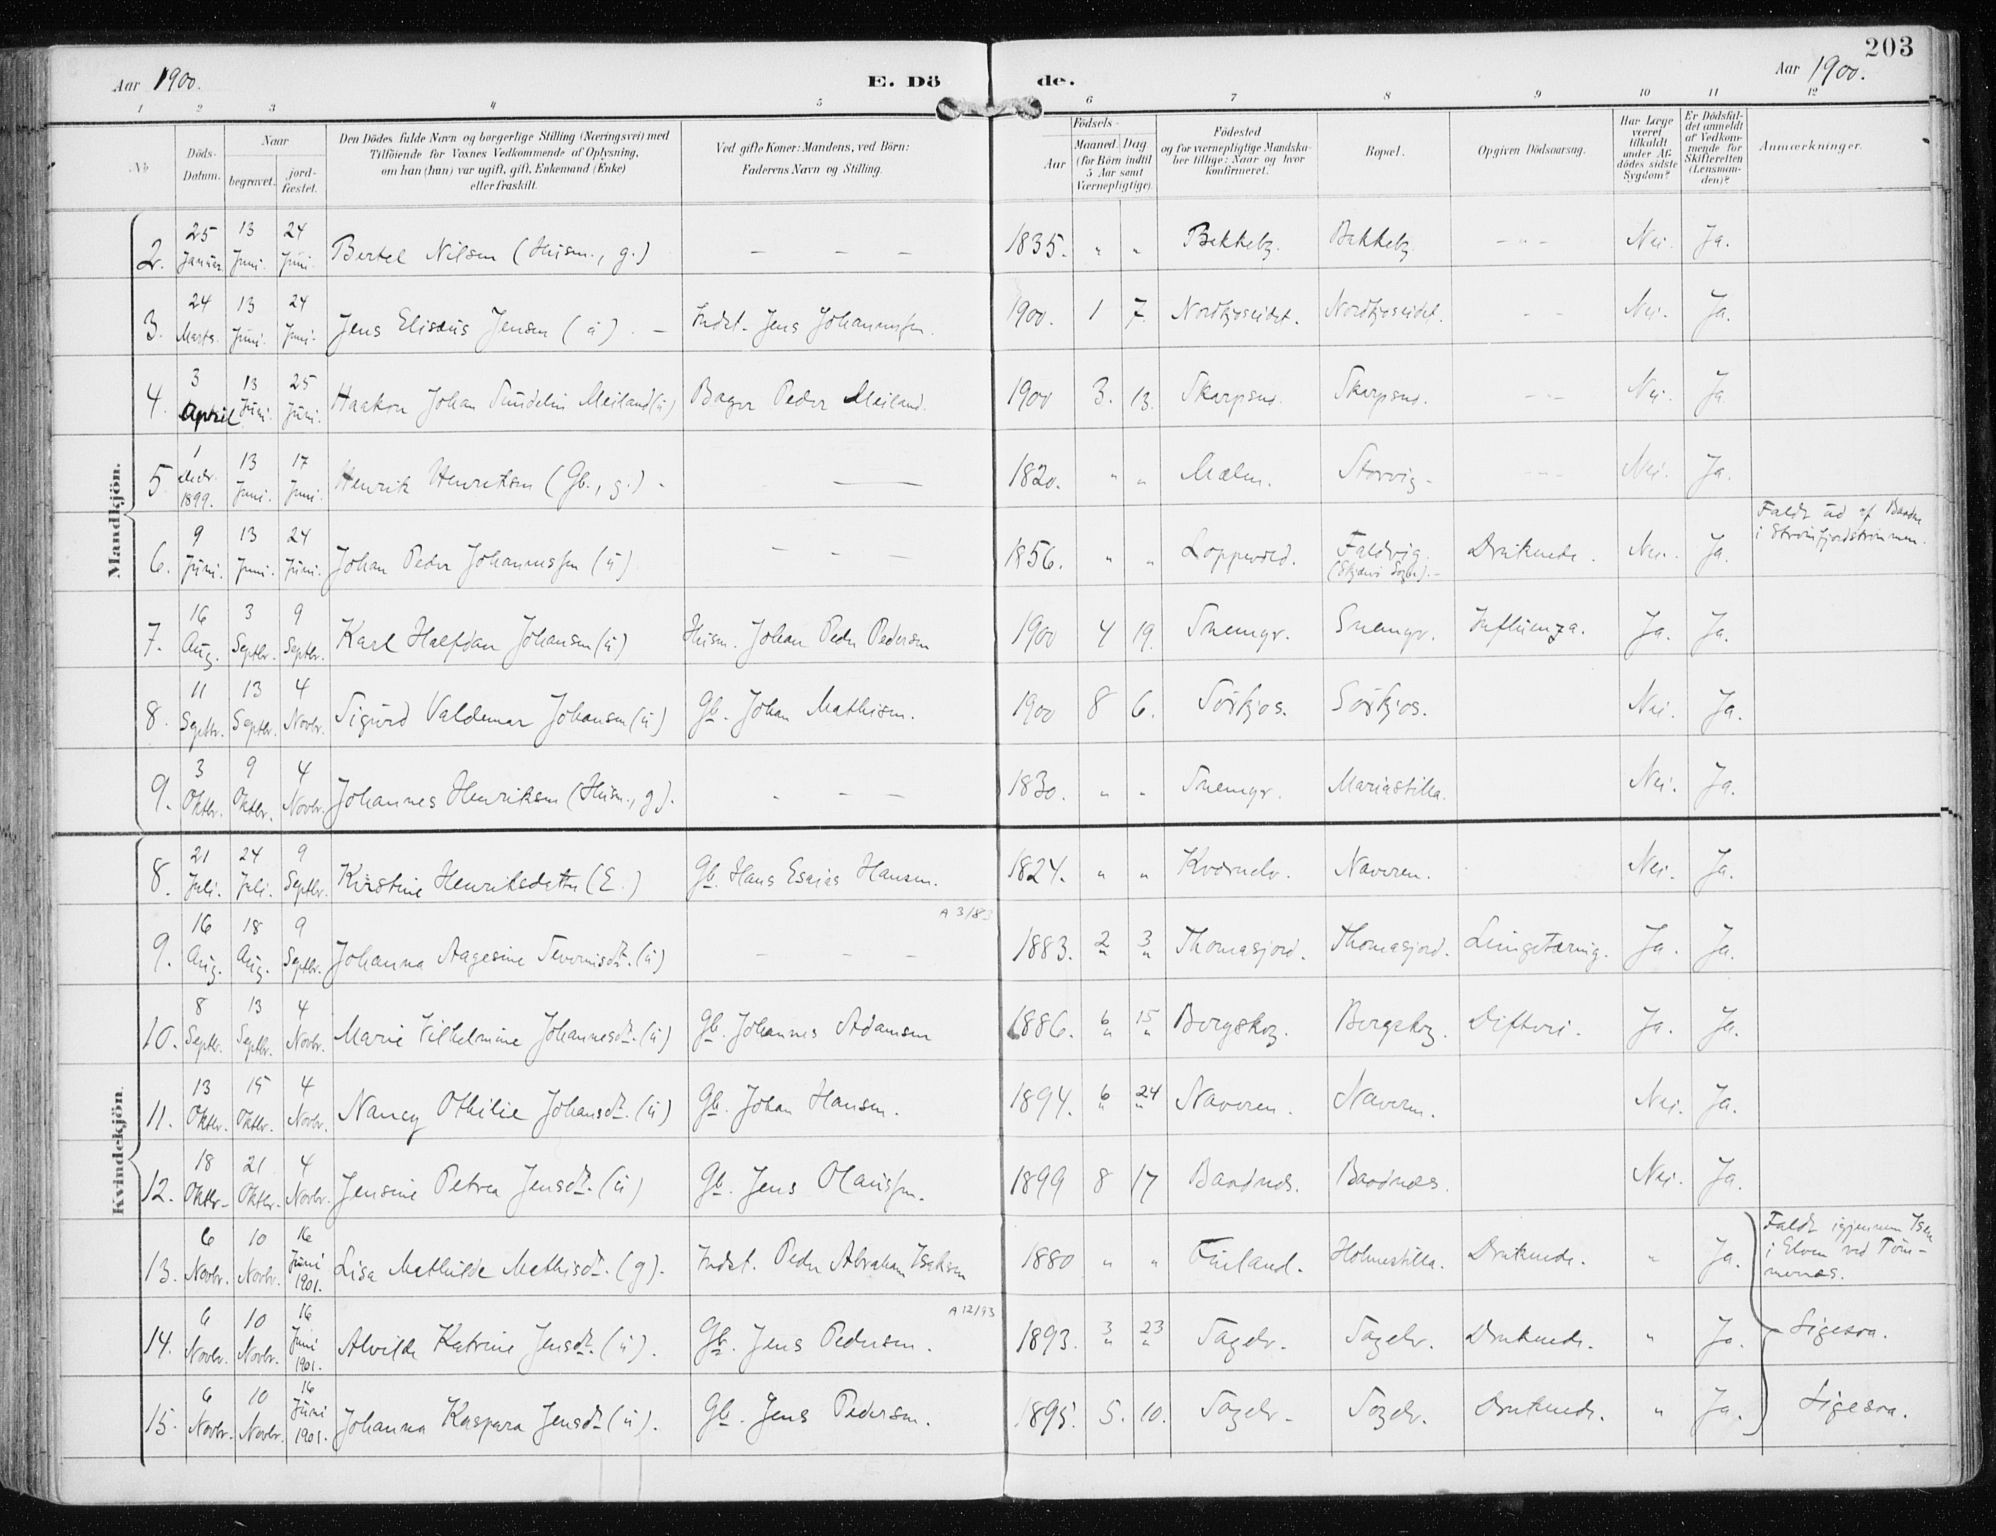 203
Aar 1900. E. Dö de. Aar 1900.
1 2 3 4 5 6 7 8 9 10 11 12
No
Döds-Datum.
Naar
begravet.
jordfæstet.
Den Dödes fulde Navn og borgerlige Stilling (Næringsvei) med
Tilföiende for Voxnes Vedkommende af Oplysning,
om han (hun) var ugift, gift, Enkemand (Enke)
eller fraskilt.
Ved gifte Koner: Mandens, ved Börn:
Faderens Navn og Stilling.
Födsels-
Aar
Maaned. Dag
(for Börn indtil
5 Aar samt
Værnepligtige).
Födested
og for værnepligtige Mandska-
ber tillige: Naar og hvor
konfirmeret.
Bopæl.
Opgiven Dödsaarsag.
Har Læge
været
tilkaldt
under Af-
dödes sidste
Sygdom?
Er Dödsfal-
det anmeldt
af Vedkom-
mende for
Skifteretten
(Lensman-
den)?
Anmærkninger.
Mandkjön.
2. 25 Januar. 13 Juni. 24 Juni. Bertel Nilsen (Husm., g.) — — — 1835. " " Bakkeby Bakkeby — " — Nei. Ja.
3. 24 Marts. 13 Juni. 24 Juni. Jens Elisæus Jensen (ü). — Indst. Jens Johannessen. 1900. 1 7. Nordkjoseidet. Nordkjoseidet. - - Nei. Ja.
4. 3 April 13 Juni. 25 Juni. Haakon Johan Meiland (ü) Bager Peder Meiland. 1900 3. 13. Skarpsno. Skarpsno. - - Nei. Ja.
5. 1 Decbr. 1899. 13 Juni. 17 Juni. Henrik Henriksen (Gb., g.) - — — 1820. " " Mælen. Storvig - - - Nei. Ja.
6. 9 Juni. 13 Juni. 24 Juni. Johan Peder Johannessen (ü) — — — 1856. " " Loppevold. Faldvig. (Skjærvö Sogn). - Druknede. Nei. Ja. Faldt ud af Baaden i Strömfjordströmmen.
7. 16 Aug. 3 Septbr. 9 Septbr. Karl Halfdan Johansen (ü) Husm. Johan Peder Pedersen 1900 4 19. Snemyr. Snemyr. Influenza. Ja. Ja.
8. 11 Septbr. 13 Septbr. 4 Novbr. Sigurd Valdemar Johansen (ü) Gb. Johan Mathisen. 1900 8 6. Sörkjos. Sörkjos. Nei. Ja.
9. 3 Oktbr. 9 Oktbr. 4 Novbr. Johannes Henriksen (Husm., g.). - — — 1830. " " Snemyr. Mariastilla. Nei. Ja.
Kvindekjön.
8. 21 Juli. 24 Juli. 9 Septbr. Kirstine Henriksdatter (E.) Gb. Hans Esaias Hansen. 1824. " " Kværnelv. Naveren. Nei. Ja.
A 3/83
9. 16 Aug. 18 Aug. 9 Septbr. Johanna Aagesine (ü) — — — 1883. 2 3 Thomasjord. Thomasjord. Lungetæring. Ja. Ja.
10. 8 Septbr. 13 Septbr. 4 Novbr. Marie Vilhelmine Johannesdt. (ü) Gb. Johannes Adamsen 1886. 6 15 Bergskog. Bergskog. Difteri. Ja. Ja.
11. 13 Oktbr. 15 Oktbr. 4 Novbr. Nancy Othilie Johansdt. (ü) Gb. Johan Hansen. 1894. 6 24 Naveren. Naveren. Nei. Ja.
12. 18 Oktbr. 21 Oktbr. 4 Novbr. Jensine Petrea Jensdt. (ü) Gb. Jens Olaussen. 1899 8 17 Baardnes. Baardnæs. Nei. Ja.
13. 6 Novbr. 10 Novbr. 16 Juni 1901. Lisa Mathilde Mathisdt. (g). Indst. Peder Abraham Isaksen 1880 " " Finland. Holmestilla. Druknede. " Ja. Faldt igjennem Isen i Elven ved Tömmernes.
A 12/93
14. 6 Novbr. 10 Novbr. 16 Juni 1901. Alvilde Katrine Jensdt. (ü). Gb. Jens Pedersen. 1893. 3 23 Tagelv. Tagelv. Druknede. " Ja. Ligesaa.
15. 6 Novbr. 10 Novbr. 16 Juni 1901. Johanna Kaspara Jensdt (ü). Gb. Jens Pedersen. 1895. 5. 10. Tagelv. Tagelv. Druknede. " Ja. Ligesaa.